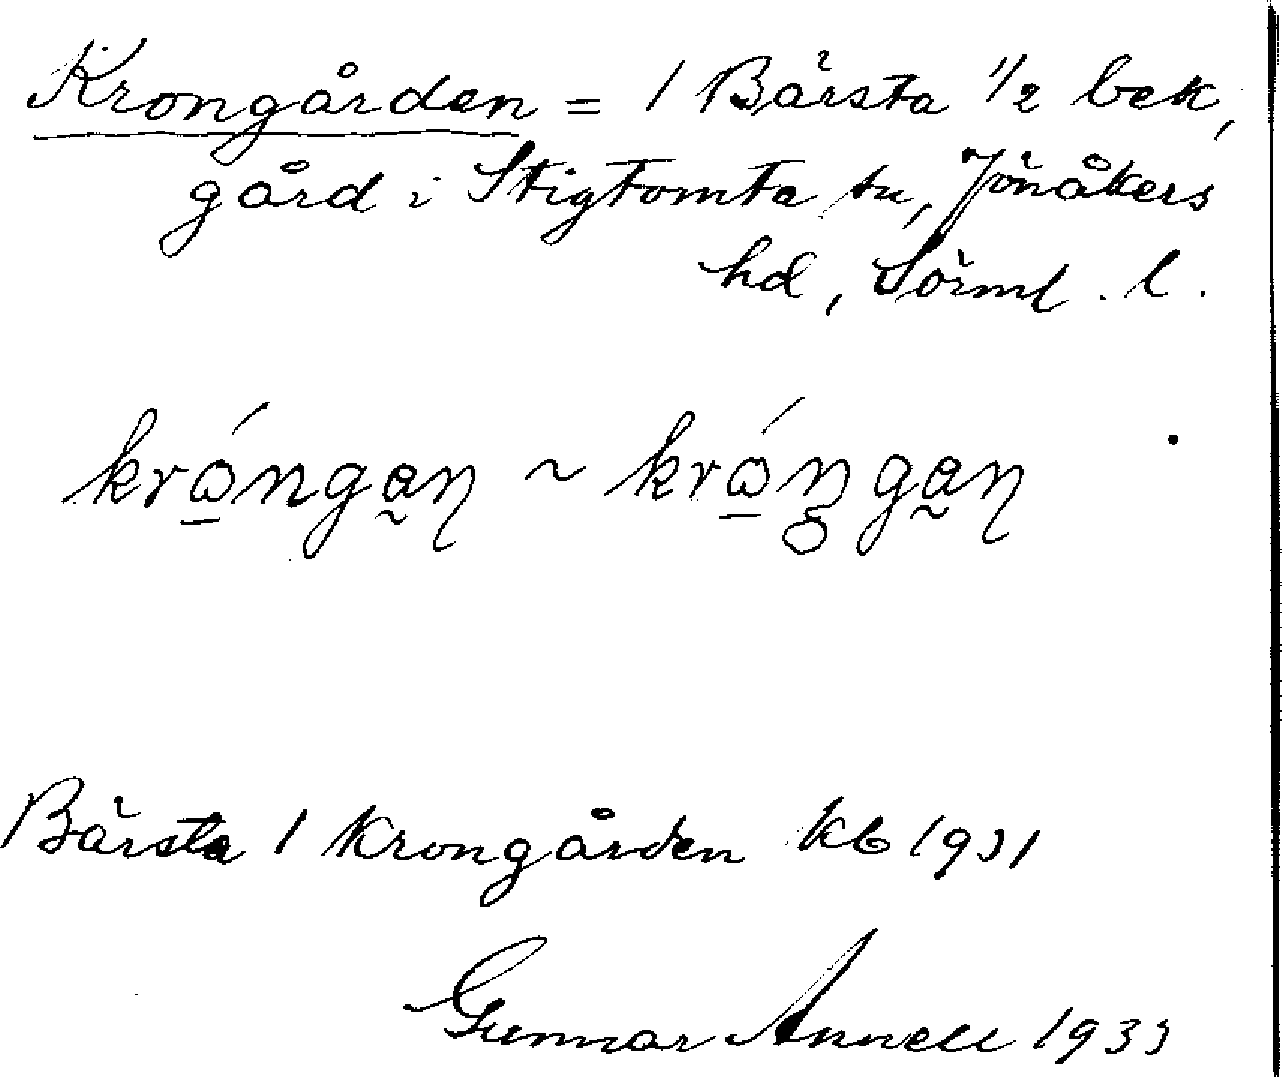 Krongården = 1 Bärsta 1/2 bek,
gård i Stigtomta sn, Jönåkers
hd, Sörml. l.
Bärsta 1 Krongården kb 1931
Gunnar Annell 1933